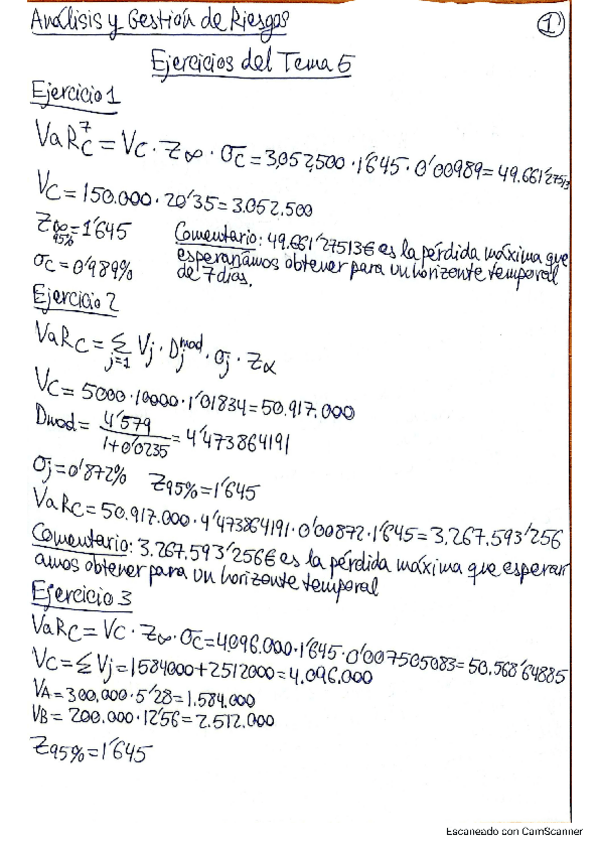 Análisis y Gestión de Riesgos
1
Ejercicios del Tema 5
Ejercicio 1
VaR_C^7 = V_C · Z_∞ · σ_C = 3,052,500 · 1'645 · 0'00989 = 49.661'27513
V_C = 150.000 · 20'35 = 3.052.500
Z_∞ 95% = 1'645
Comentario: 49.661'27513€ es la pérdida máxima que
esperaríamos obtener para un horizonte temporal
σ_C = 0'989%
de 7 días.
Ejercicio 2
VaR_C = Σ_{j=1} V_j · D_j^{mod} · σ_j · Z_α
V_C = 5000 · 10000 · 1'01834 = 50.917.000
Dmod = 4'579 / 1+0'0235 = 4'473864191
σ_j = 0'872% Z_95% = 1'645
VaR_C = 50.917.000 · 4'473864191 · 0'00872 · 1'645 = 3.267.593'256
Comentario: 3.267.593'256€ es la pérdida máxima que esperarí
amos obtener para un horizonte temporal
Ejercicio 3
VaR_C = V_C · Z_∞ · σ_C = 4.096.000 · 1'645 · 0'007505083 = 50.568'64885
V_C = Σ V_j = 1584000 + 2512000 = 4.096.000
V_A = 300.000 · 5'28 = 1.584.000
V_B = 200.000 · 12'56 = 2.512.000
Z_95% = 1'645
Escaneado con CamScanner